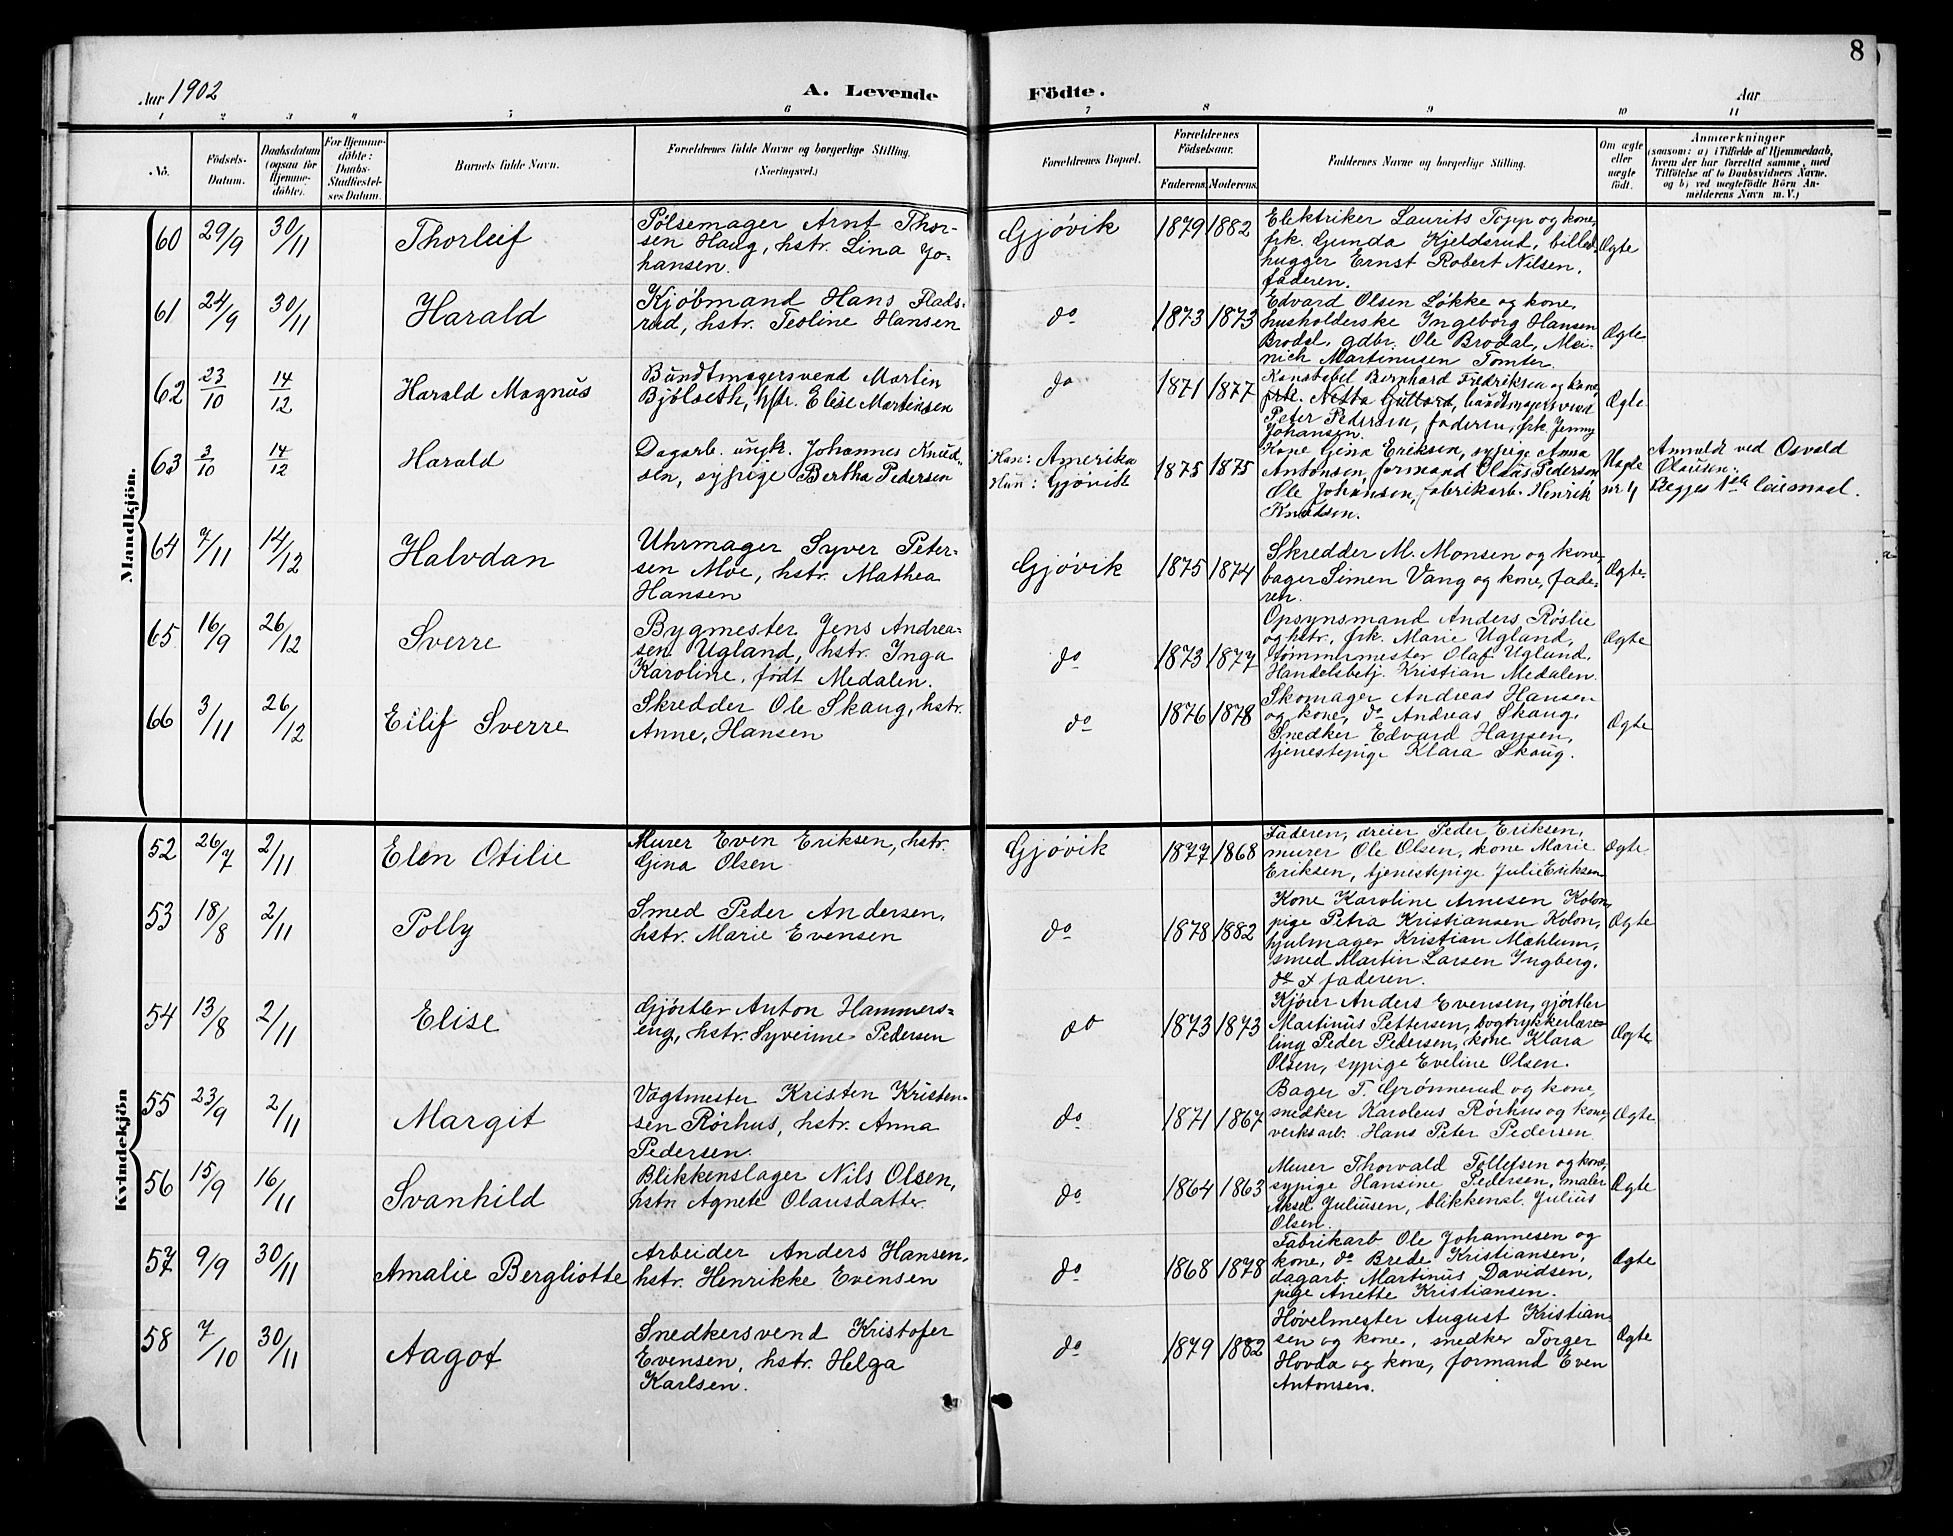 8
Aar 1902
A. Levende
Födte.
Aar
1 2 3 4 5 6 7 8 9 10 11
No.
Födsels-
Datum.
Daabsdatum
(ogsaa for
Hjemme-
döbte).
For Hjemme-
döbte:
Daabs-
Stadfæstel-
ses Datum.
Barnets fulde Navn.
Forældrenes fulde Navne og borgerlige Stilling.
(Næringsvei.)
Forældrenes Bopæl.
Forældrenes
Födselsaar.
Faderens. Moderens.
Faddernes Navne og borgerlige Stilling.
Om ægte
eller
uægte
født.
Anmærkninger
(saasom: a) i Tilfælde af Hjemmedaab,
hvem der har forrettet samme, med
Tilföielse af to Daabsvidners Navne.
og b) ved uægtefödte Börn An-
melderens Navn m. V.)
Mandkjön.
60 29/9 30/11 Thorleif
Pølsemager Arnt Thor-
sen Haug, hstr. Lina Jo-
hansen.
Gjøvik 1879 1882
Elektriker Laurits Topp og kone,
frk. Gunda Kjeldsrud, billed-
hugger Ernst Robert Nilsen,
faderen.
Ægte
61 24/9 30/11 Harald
Kjøbmand Hans Flads-
rud, hstr. Teoline Hansen
do 1873 1873
Edvard Olsen Løkke og kone,
husholderske Ingeborg Hansen
Brodal, gdbr. Ole Brodal, Mei-
nich Martinusen Tomter.
Ægte
62 23/10 14/12 Harald Magnus
Buntmagersvend Martin
Bjølseth, hstr. Elise Martinsen
do 1871 1877
Konstabel Bernhard Fredriksen og kone,
frk. Netta Guttord, buntmagersvend
Peter Pedersen, faderen, frk. Jenny
Johansen.
Ægte
63 3/10 14/12 Harald
Dagarb. ungk. Johannes Knud-
sen, sypige Bertha Pedersen
Han: Amerika
Hun: Gjøvik
1875 1875
Kone Gina Eriksen, sypige Anna
Antonsen, formand Olaus Pedersen
Ole Johansen, fabrikarb. Henrik
Knudsen.
Uægte
nr 4
Anmeldt ved Osvald
Olausen.
Begges 1ste leiermaal.
64 7/11 14/12 Halvdan
Uhrmager Syver Peter-
sen Moe, hstr. Mathea
Hansen
Gjøvik 1875 1874
Skredder M. Monsen og kone,
bager Simen Vang og kone, fade-
ren.
Ægte.
65 16/9 26/12 Sverre
Bygmester Jens Andrea-
sen Ugland, hstr. Inga
Karoline, født Medalen.
do 1873 1877
Opsynsmand Anders Røslie
og hstr., frk. Marie Ugland,
tømmermester Olaf Ugland,
Handelsbetj. Kristian Medalen.
Ægte
66 3/11 26/12 Eilif Sverre
Skredder Ole Skaug, hstr.
Anne, Hansen
do 1876 1878
Skomager Andreas Hansen
og kone, do Andreas Skaug,
Snedker Edvard Hansen,
tjenestepige Klara Skaug.
Ægte
Kvindekjön
52 26/7 2/11 Elen Otilie
Murer Even Eriksen, hstr.
Gina Olsen
Gjøvik 1877 1868
Faderen, dreier Peder Eriksen,
murer Ole Olsen, kone Marie
Eriksen, tjenestepige Julie Eriksen
Ægte
53 18/8 2/11 Polly
Smed Peder Andersen,
hstr. Marie Evensen
do 1878 1882
Kone Karoline Arnesen Kolon,
pige Petra Kristiansen Kolon,
hjulmager Kristian Mæhlum,
smed Martin Larsen Yngberg,
do + faderen.
Ægte
54 13/8 2/11 Elise
Gjørtler Anton Hammers-
eng, hstr. Syverine Pedersen
do 1873 1873
Kjører Anders Evensen, gjørtler
Martinus Pettersen, bogtrykkerlære-
ling Peder Pedersen, kone Klara
Olsen, sypige Eveline Olsen.
Ægte
55 23/9 2/11 Margit
Vagtmester Kristen Kristen-
sen Rørhus, hstr. Anna
Pedersen.
do 1871 1867
Bager T. Grønnerud og kone,
snedker Karolius Rørhus og kone,
verksarb. Hans Peter Pedersen
Ægte
56 15/9 16/11 Svanhild
Blikkenslager Nils Olsen,
hstr Agnete Olausdatter.
do 1864 1863
Murer Thorvald Tollefsen og kone,
sypige Hansine Pedersen, maler
Aksel Juliusen, blikkensl. Julius
Olsen.
Ægte
57 9/9 30/11 Amalie Bergliotte
Arbeider Anders Hansen,
hstr. Henrikke Evensen
do 1868 1878
Fabrikarb Ole Johannesen og
kone, do Brede Kristiansen,
dagarb. Martinus Davidsen,
pige Anette Kristiansen.
Ægte
58 7/10 30/11 Aagot
Snedkersvend Kristofer
Evensen, hstr. Helga
Karlsen.
do 1879 1882
Høvelmester August Kristian-
sen og kone, snedker Torger
Hovda og kone, formand Even
Antonsen.
Ægte